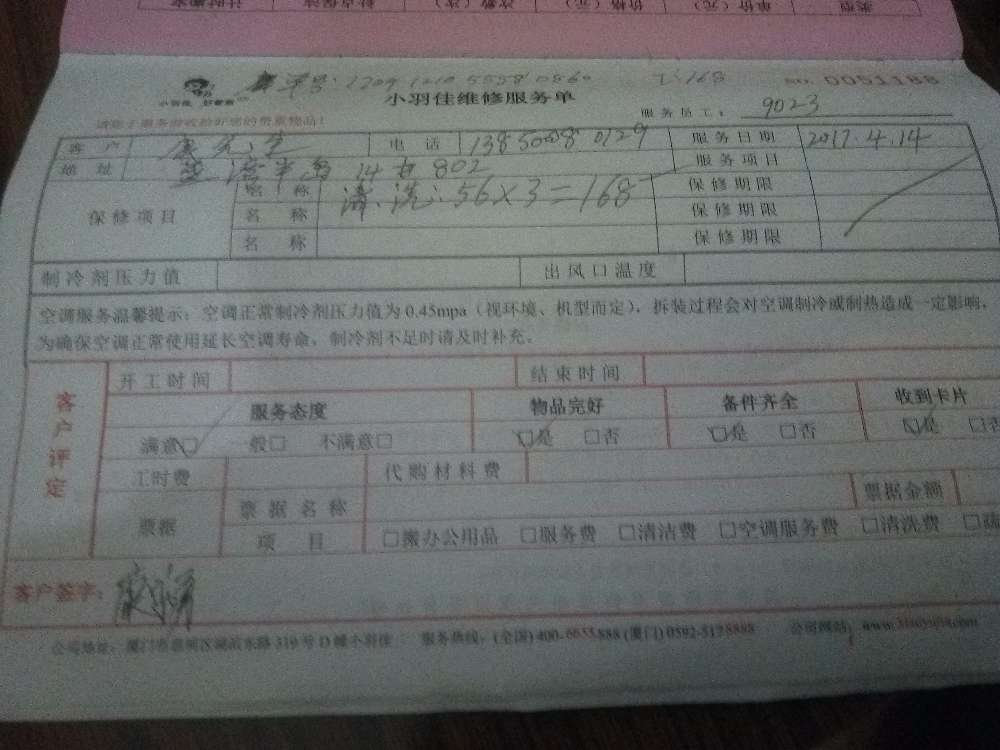 类型 单价（元） 价格（元） 次数（次）
单号：
168
NO. 0051188
小羽佳维修服务单
服务员工： 9023
客户 电话 13850080129 服务日期 2017.4.14
地址 14 802 服务项目
保修项目 名称 清洗：56×3=168 保修期限
名称 保修期限
名称 保修期限
制冷剂压力值 出风口温度
空调服务温馨提示：空调正常制冷剂压力值为0.45mpa（视环境、机型而定），拆装过程会对空调制冷或制热造成一定影响，
为确保空调正常使用延长空调寿命，制冷剂不足时请及时补充。
客户评定
开工时间 结束时间
服务态度 物品完好 备件齐全 收到卡片
满意□ 一般□ 不满意□ □是 □否 □是 □否 □是 □否
工时费 代购材料费
票据 票据名称 票据金额
项目 □搬办公用品 □服务费 □清洁费 □空调服务费 □清洗费
客户签字：
公司地址：厦门市思明区湖滨东路319号D幢小羽佳 服务热线：(全国) 400-6655888 (厦门) 0592-5128898 公司网站：www.xiaoyujia.com